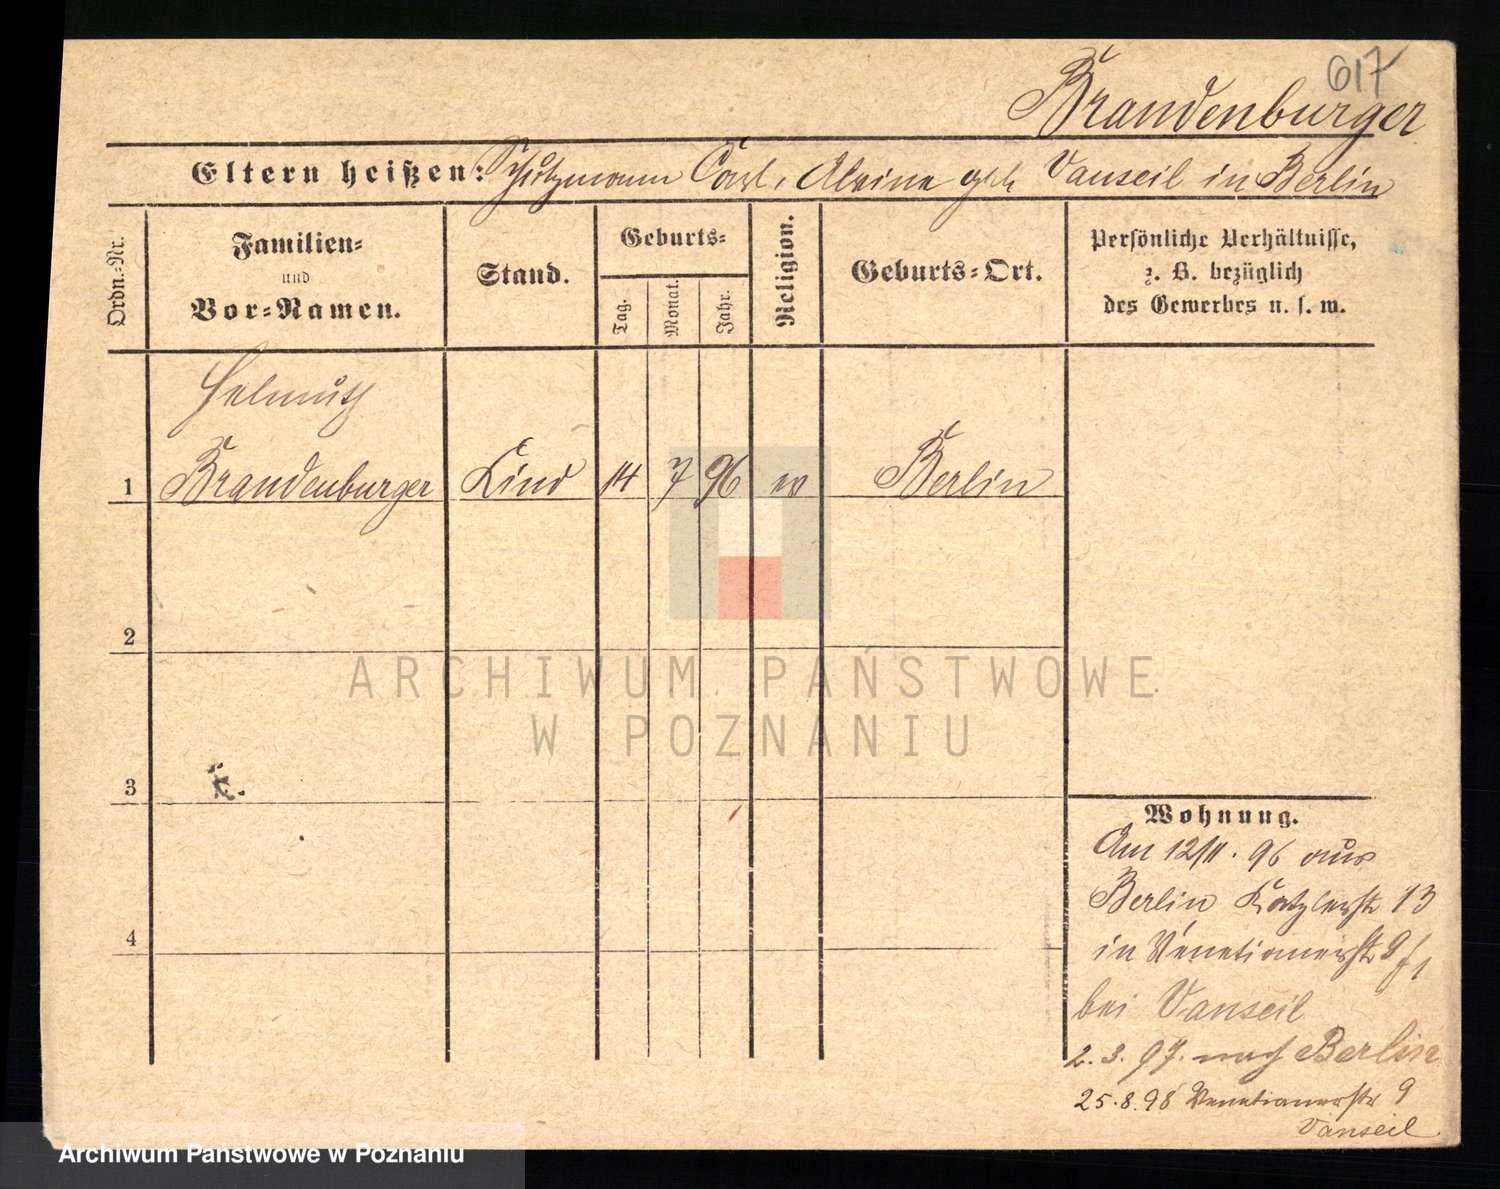 617
Brandenburger
Eltern heißen: Schutzmann Carl, Alvine geb Vanseil in Berlin
Ordn.-Nr.
Familien-
und
Vor-Namen.
Stand.
Geburts-
Tag.
Monat.
Jahr.
Religion.
Geburts-Ort.
Persönliche Verhältnisse,
z. B. bezüglich
des Gewerbes u. s. w.
Helmuth
1 Brandenburger Kind 14 7 96 ev Berlin
2
3
4
Wohnung.
Am 12/11. 96 aus
Berlin Katzlerstr 13
in Venetianerstr 9/1
bei Vanseil
2. 3. 97. nach Berlin
25.8.98 Venetianerstr 9
Vanseil
ARCHIWUM PAŃSTWOWE
W POZNANIU
Archiwum Państwowe w Poznaniu